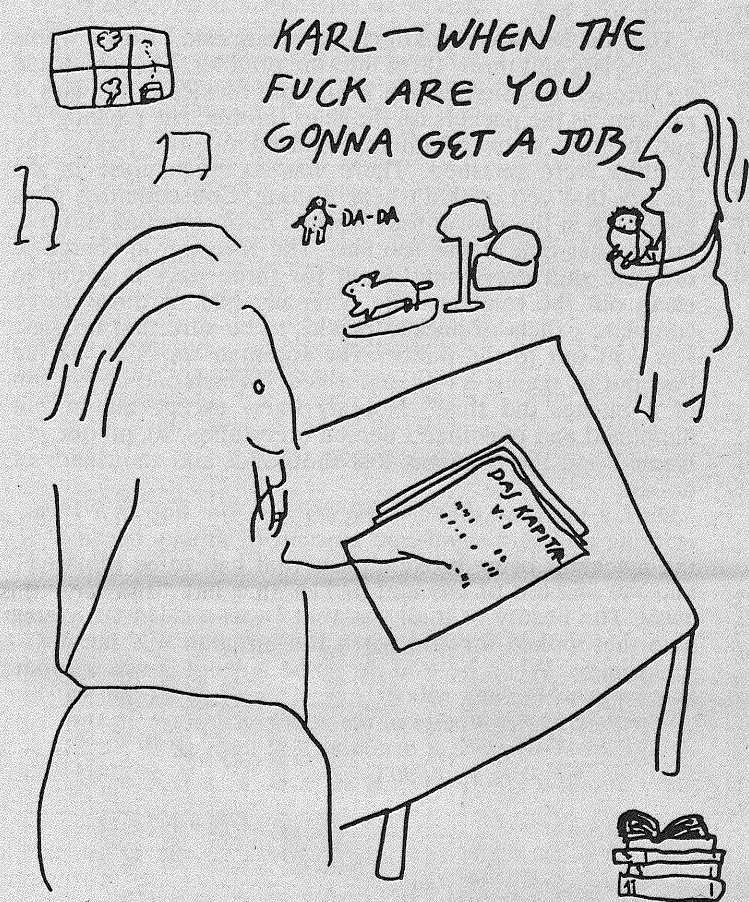 KARL — WHEN THE
FUCK ARE YOU
GONNA GET A JOB
DA-DA
DAS KAPITAL
V.1